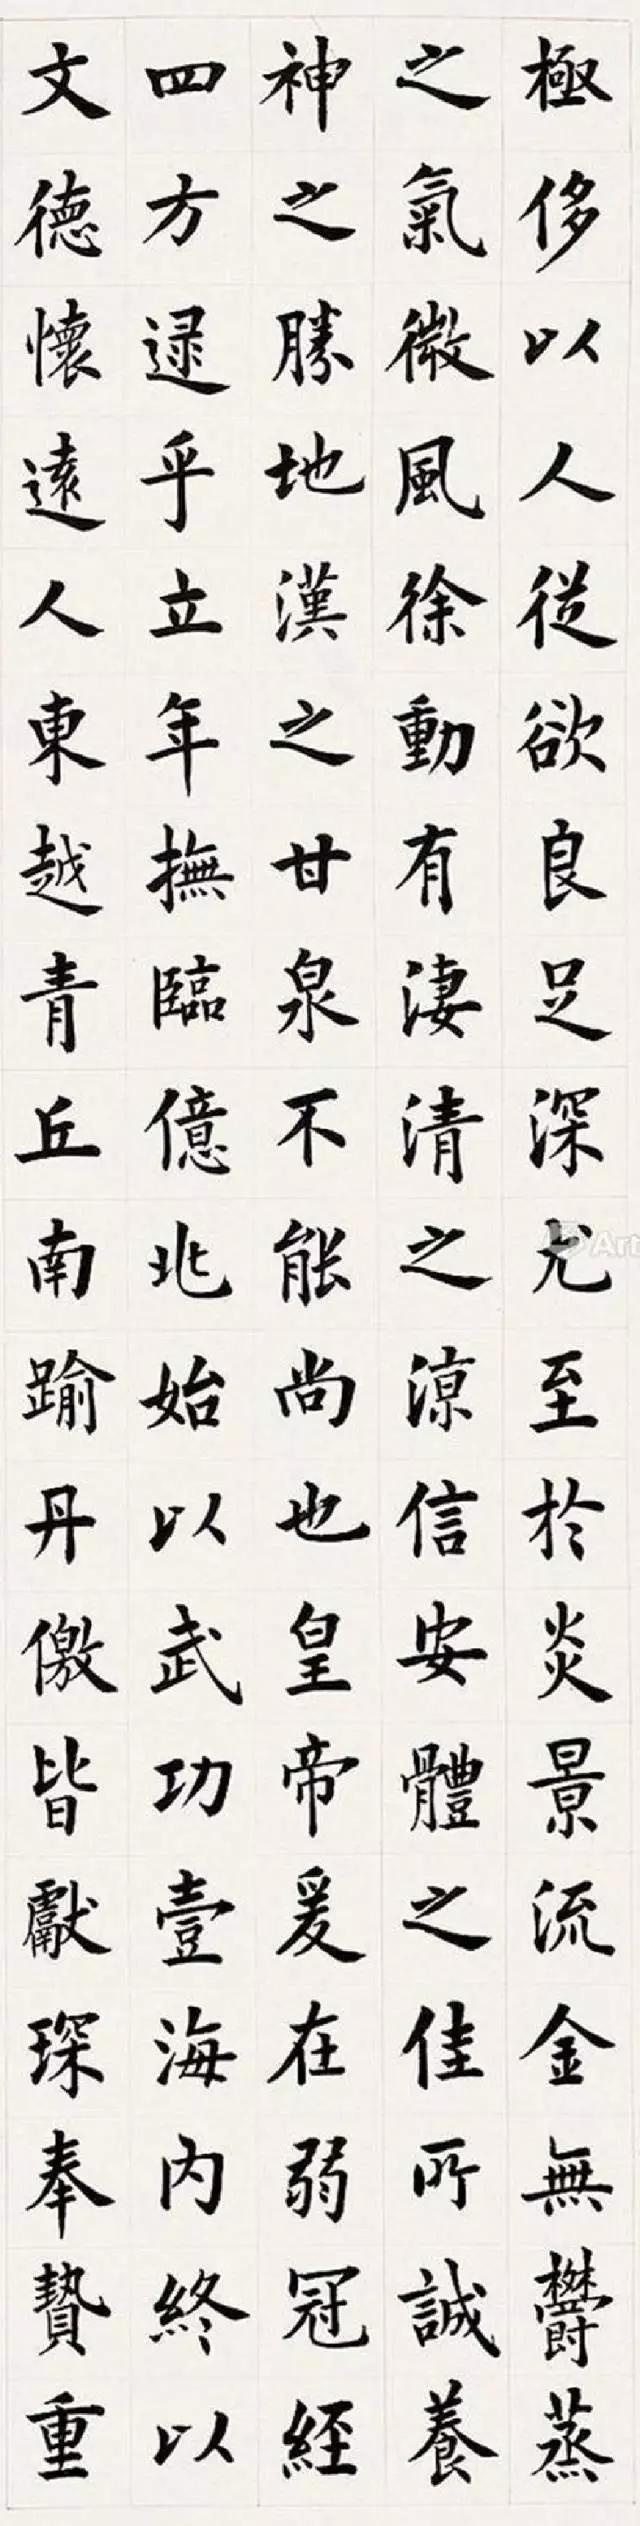 極侈以人從欲良足深尤至於炎景流金無鬱蒸
之氣微風徐動有淒清之涼信安體之佳所誠養
神之勝地漢之甘泉不能尚也皇帝爰在弱冠經
四方逯乎立年撫臨億兆始以武功壹海内終以
文德懷遠人東越青丘南踰丹儌皆獻琛奉贄重
Art